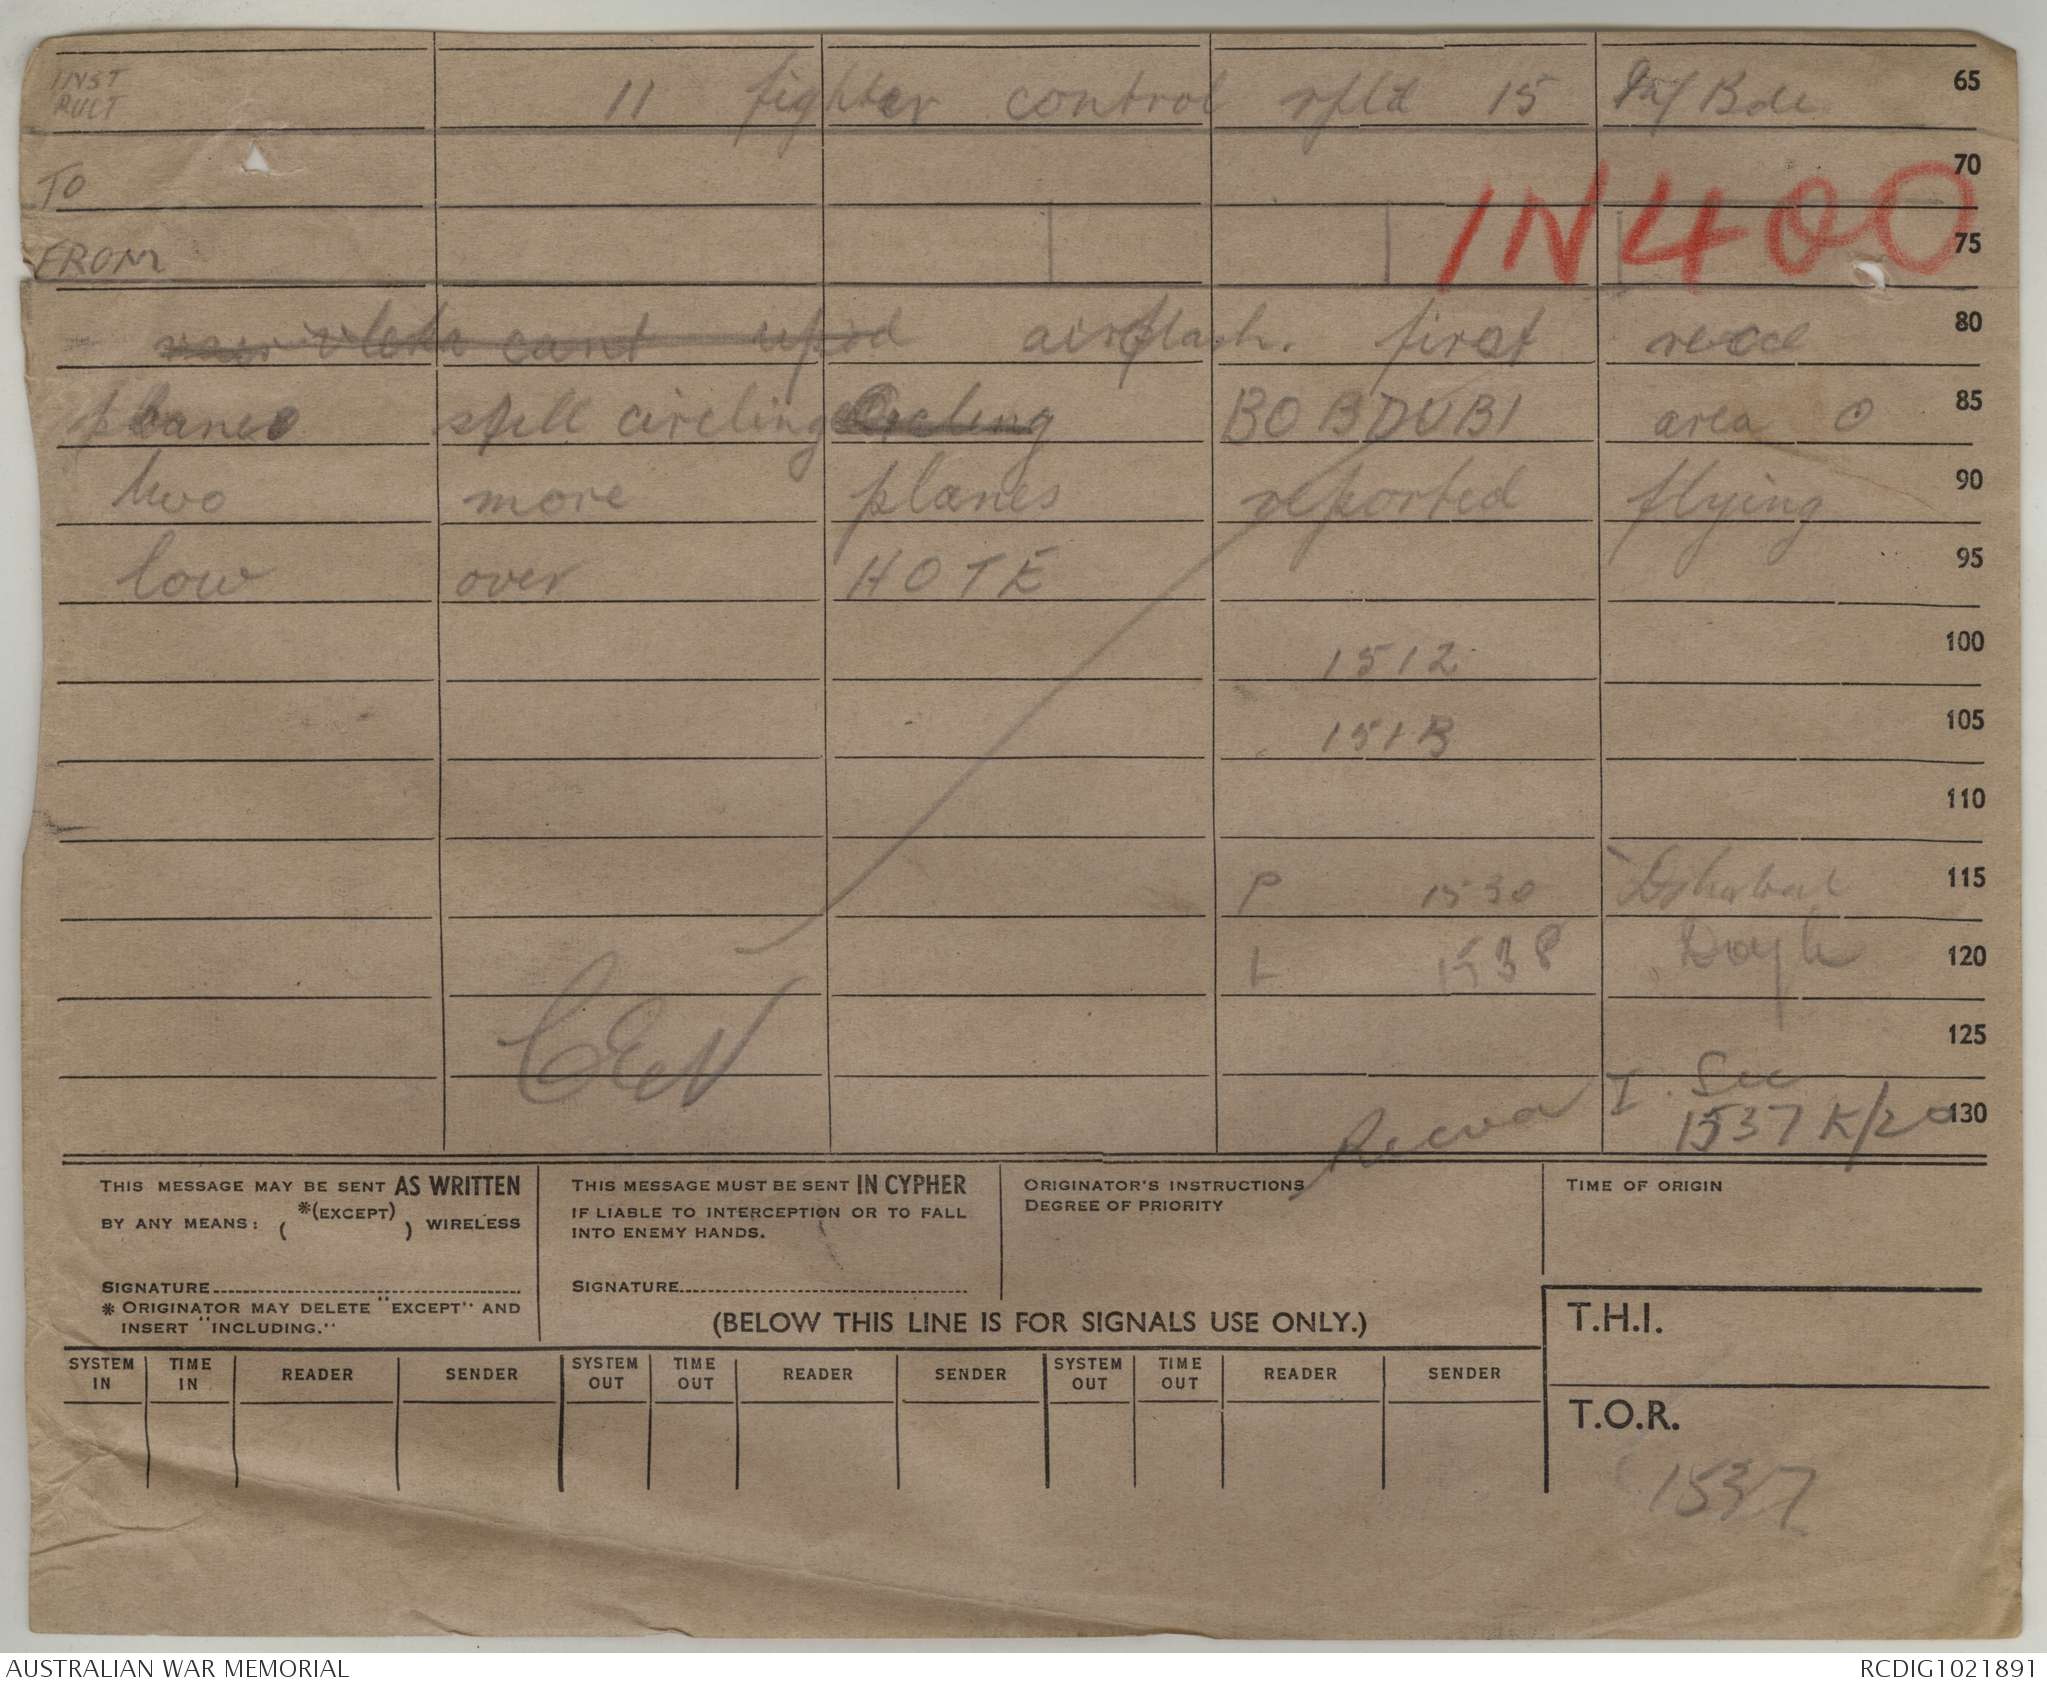 INST 11 fighter control rptd 15 Inf Bde. 65
RULT
TO 70
IN400
FROM 75
airflash. first recce 80
planes still circling Circling BOBDUBI area O 85
two more planes reported flying 90
low over HOTE 95
1512 100
151B 105
110
P 1530 115
L 1538 Doyle 120
125
I. Sec
1537 K/20 130
THIS MESSAGE MAY BE SENT AS WRITTEN
BY ANY MEANS: ( *(EXCEPT) ) WIRELESS
SIGNATURE
* ORIGINATOR MAY DELETE "EXCEPT" AND
INSERT "INCLUDING."
THIS MESSAGE MUST BE SENT IN CYPHER
IF LIABLE TO INTERCEPTION OR TO FALL
INTO ENEMY HANDS.
SIGNATURE
ORIGINATOR'S INSTRUCTIONS
DEGREE OF PRIORITY
TIME OF ORIGIN
(BELOW THIS LINE IS FOR SIGNALS USE ONLY.)
T.H.I.
SYSTEM IN TIME IN READER SENDER SYSTEM OUT TIME OUT READER SENDER SYSTEM OUT TIME OUT READER SENDER
T.O.R.
1537
AUSTRALIAN WAR MEMORIAL RCDIG1021891